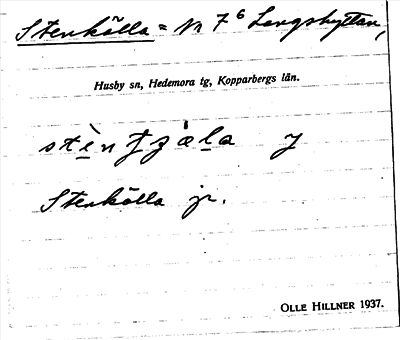 Stenkälla = N 7⁶ Långshyttan,
Husby sn, Hedemora tg, Kopparbergs län.
Stenkälla jr.
OLLE HILLNER 1937.